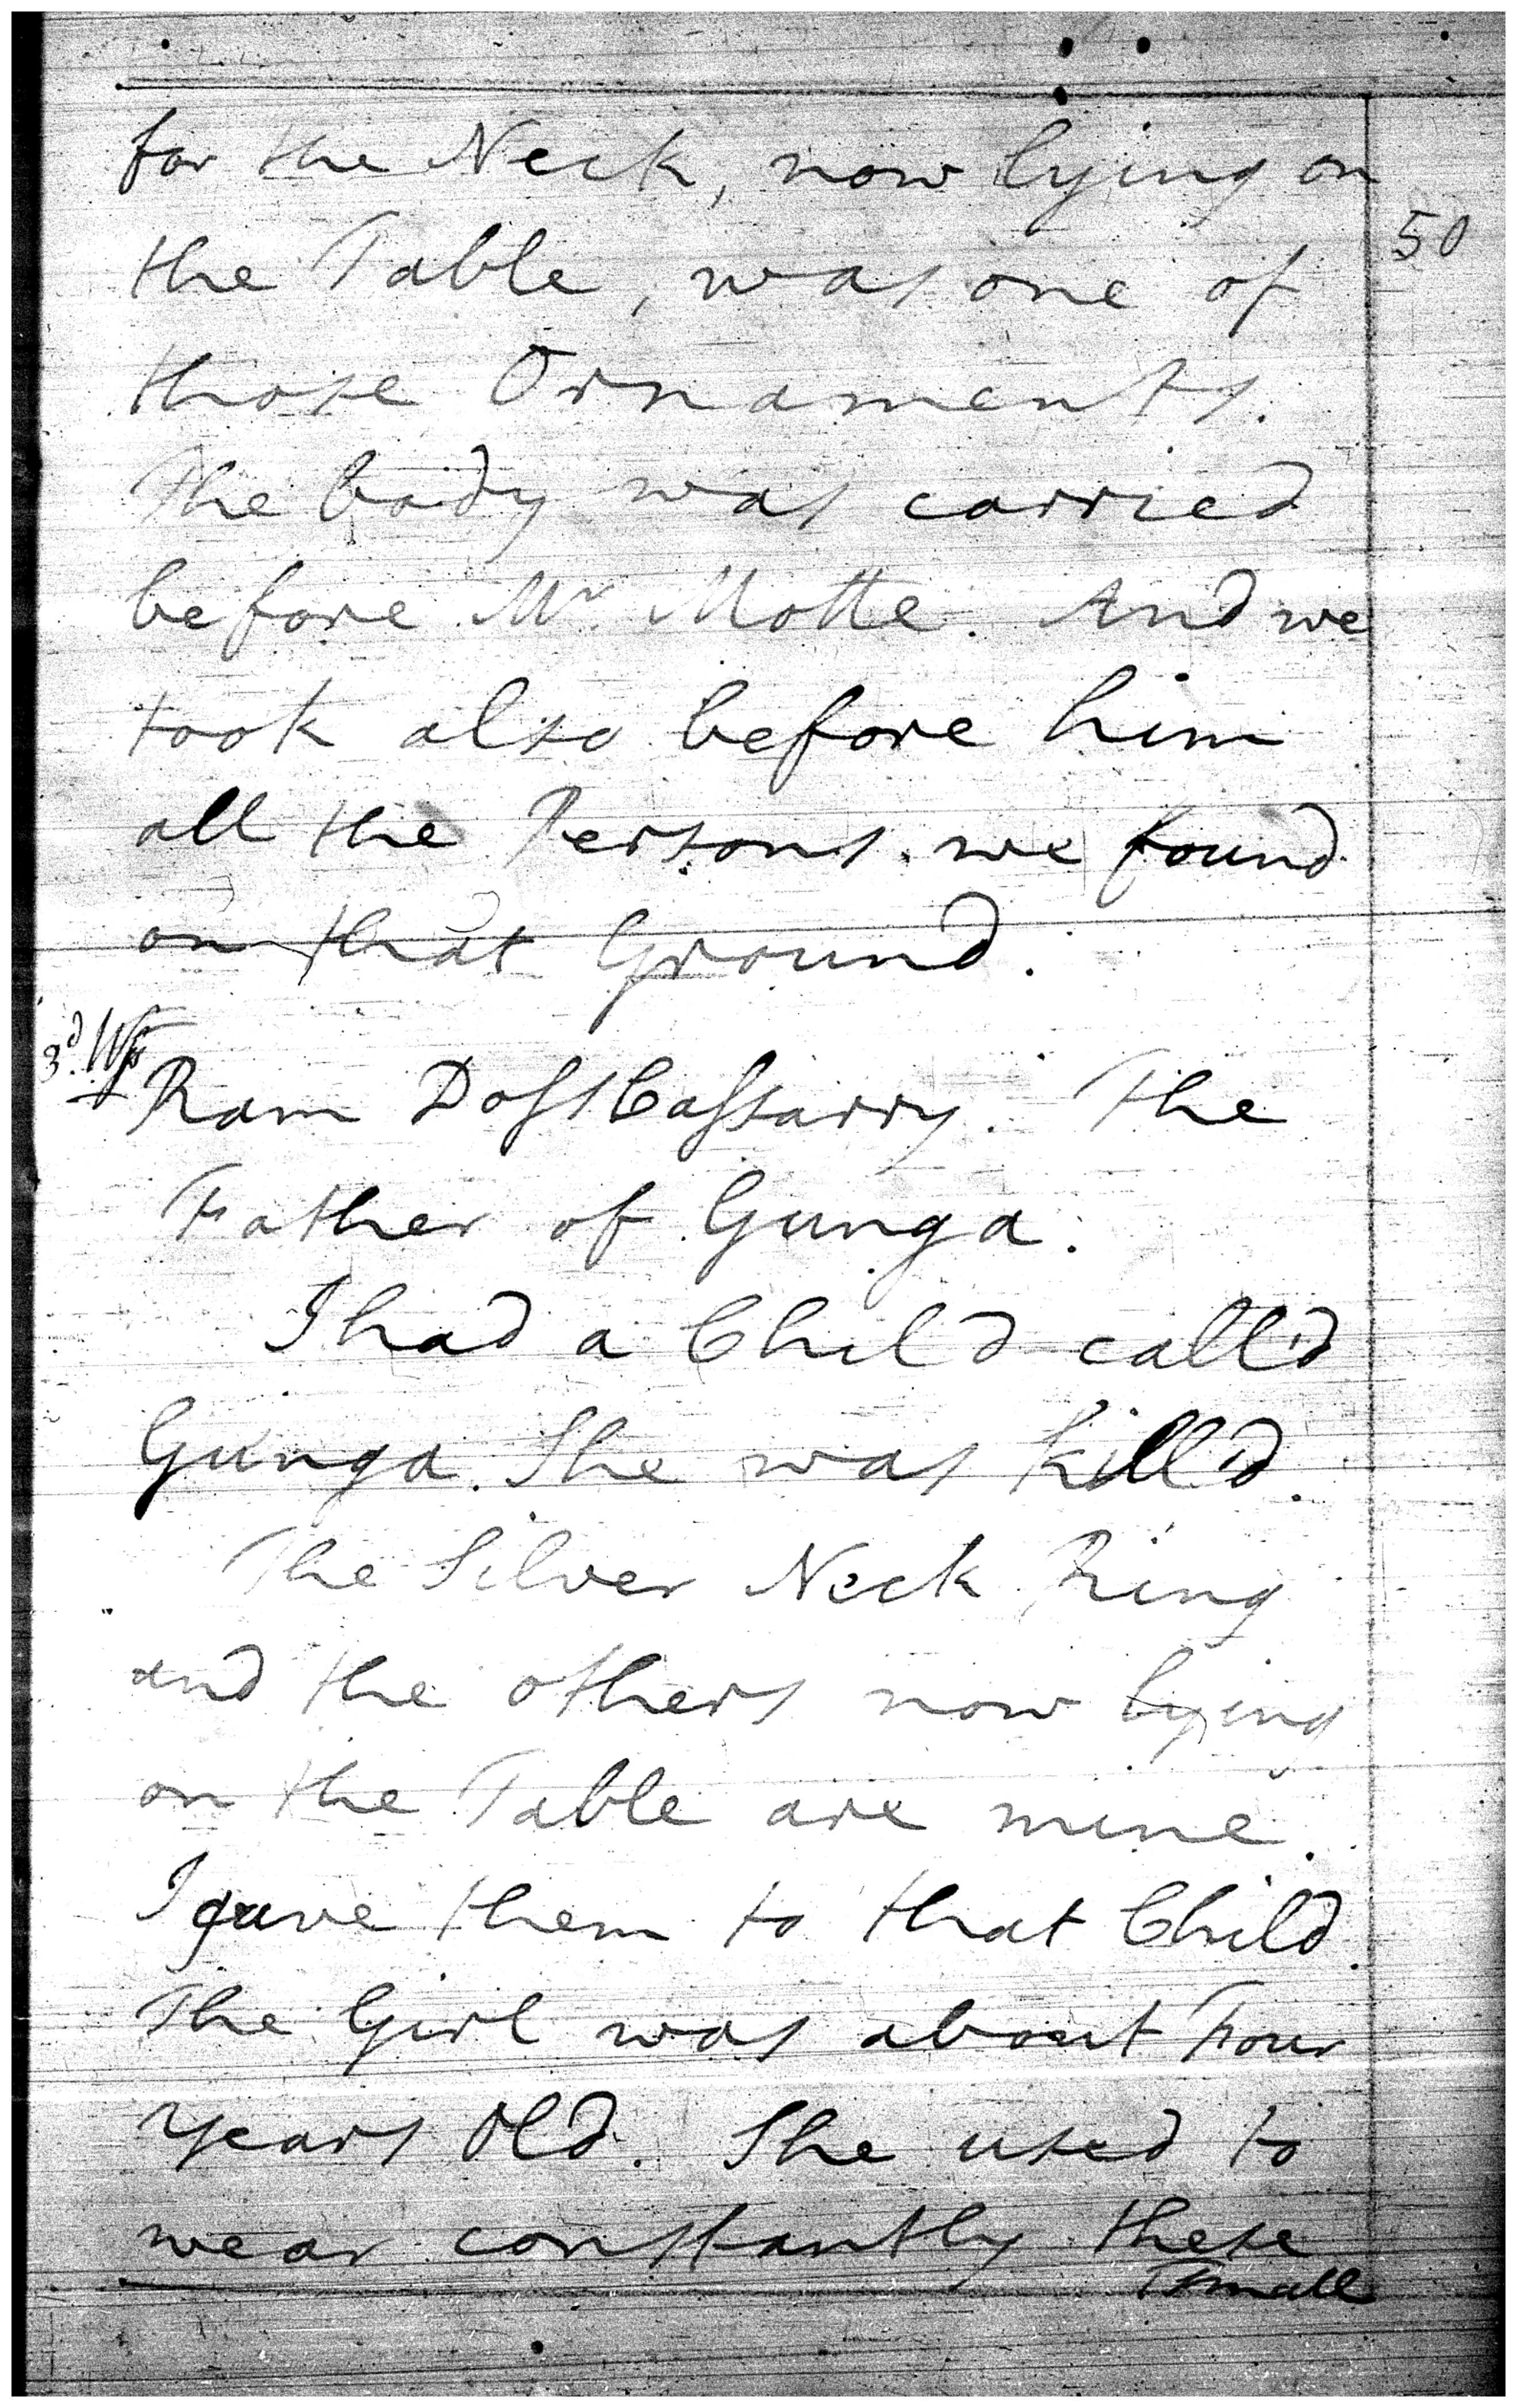 for the Neck, now lying on
50
the Table, was one of
those Ornaments.
The body was carried
before Mr. Motte. And we
took also before him
all the Persons we found
on that Ground.
3d. Ws
Ram Doss Cassarry. The
Father of Gunga.
I had a Child call'd
Gunga. She was kill'd.
The Silver Neck Ring
and the others now lying
on the Table are mine.
I gave them to that Child.
The Girl was about Four
Years Old. She used to
wear constantly these
small